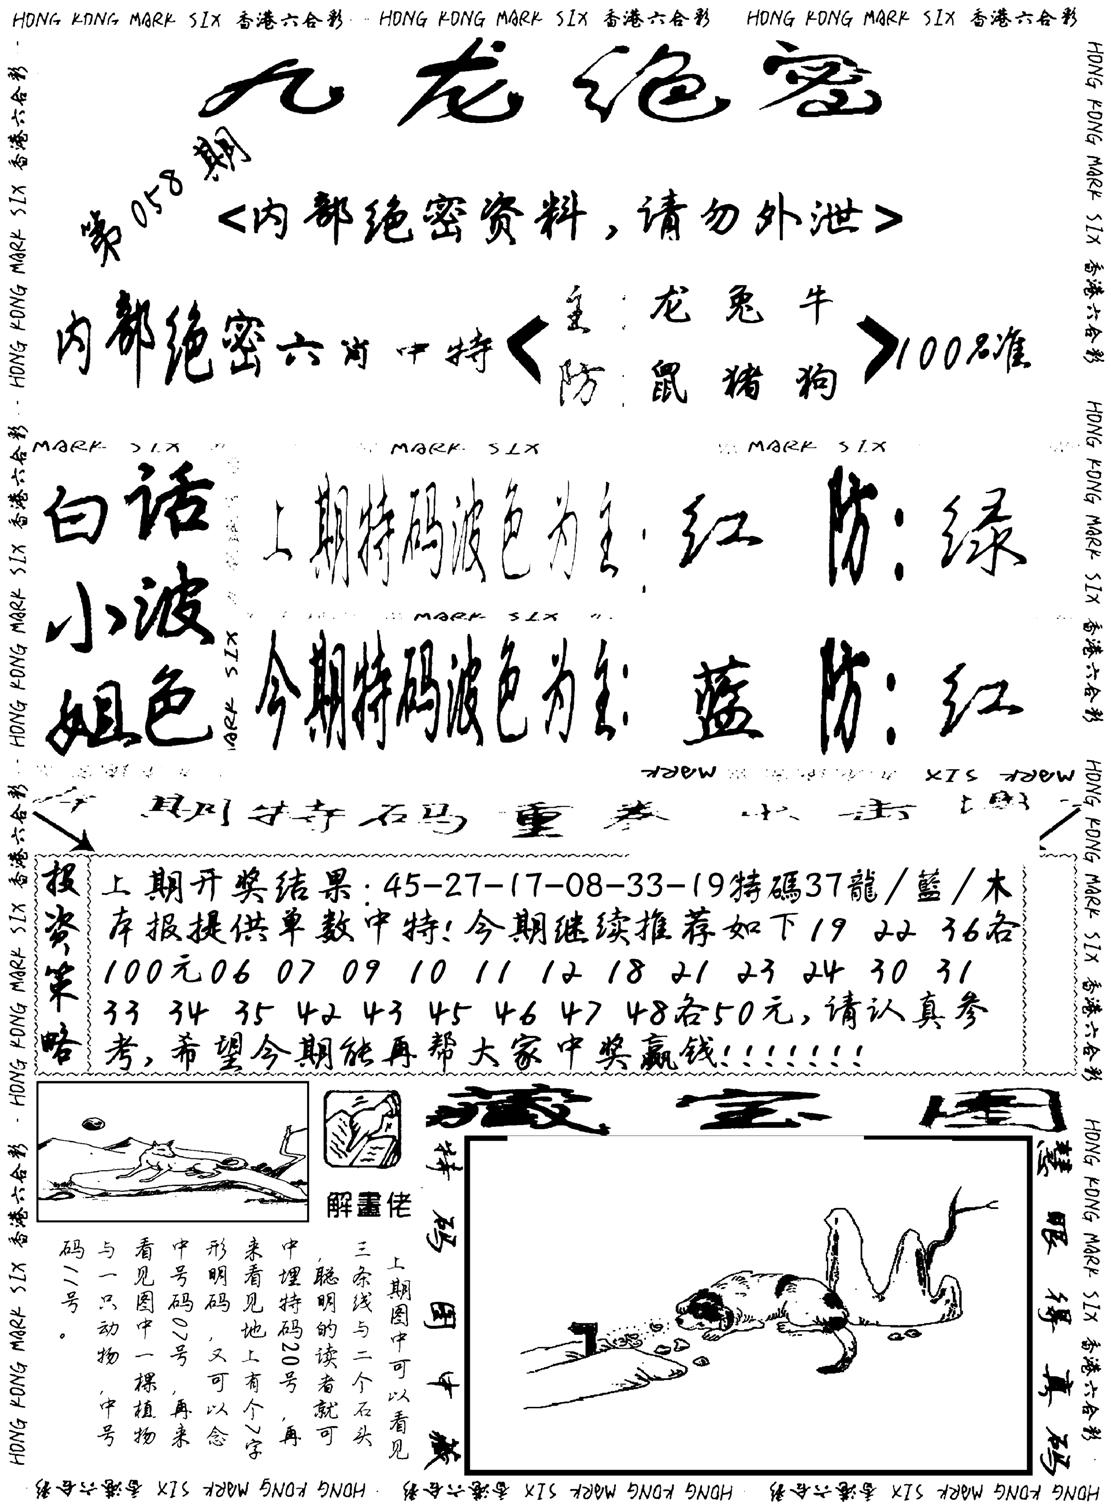 HONG KONG MARK SIX 香港六合彩 HONG KONG MARK SIX 香港六合彩 HONG KONG MARK SIX 香港六合彩
九龙绝密
第058期
<内部绝密资料,请勿外泄>
内部绝密六肖中特
主:龙兔牛
防:鼠猪狗
100%准
MARK SIX MARK SIX MARK SIX
白话
小波
姐色
上期特码波色为主:红 防:绿
MARK SIX
今期特码波色为主:蓝 防:红
MARK SIX
MARK MARK SIX
期特码重拳出击
投资策略
上期开奖结果:45-27-17-08-33-19特碼37龍/藍/木
本报提供单数中特!今期继续推荐如下19 22 36各
100元06 07 09 10 11 12 18 21 23 24 30 31
33 34 35 42 43 45 46 47 48各50元,请认真参
考,希望今期能再帮大家中奖赢钱!!!!!!!
藏宝图
解畫佬
上期图中可以看见
三条线与二个石头
,聪明的读者就可
中埋特码20号,再
来看见地上有个7字
形明码,又可以念
中号码07号,再来
看见图中一棵植物
与一只动物,中号
码11号。
特码图中藏
慧眼得真码
HONG KONG MARK SIX 香港六合彩 HONG KONG MARK SIX 香港六合彩 HONG KONG MARK SIX 香港六合彩 HONG KONG MARK SIX 香港六合彩
HONG KONG MARK SIX 香港六合彩 HONG KONG MARK SIX 香港六合彩 HONG KONG MARK SIX 香港六合彩 HONG KONG MARK SIX 香港六合彩
HONG KONG MARK SIX 香港六合彩 HONG KONG MARK SIX 香港六合彩 HONG KONG MARK SIX 香港六合彩